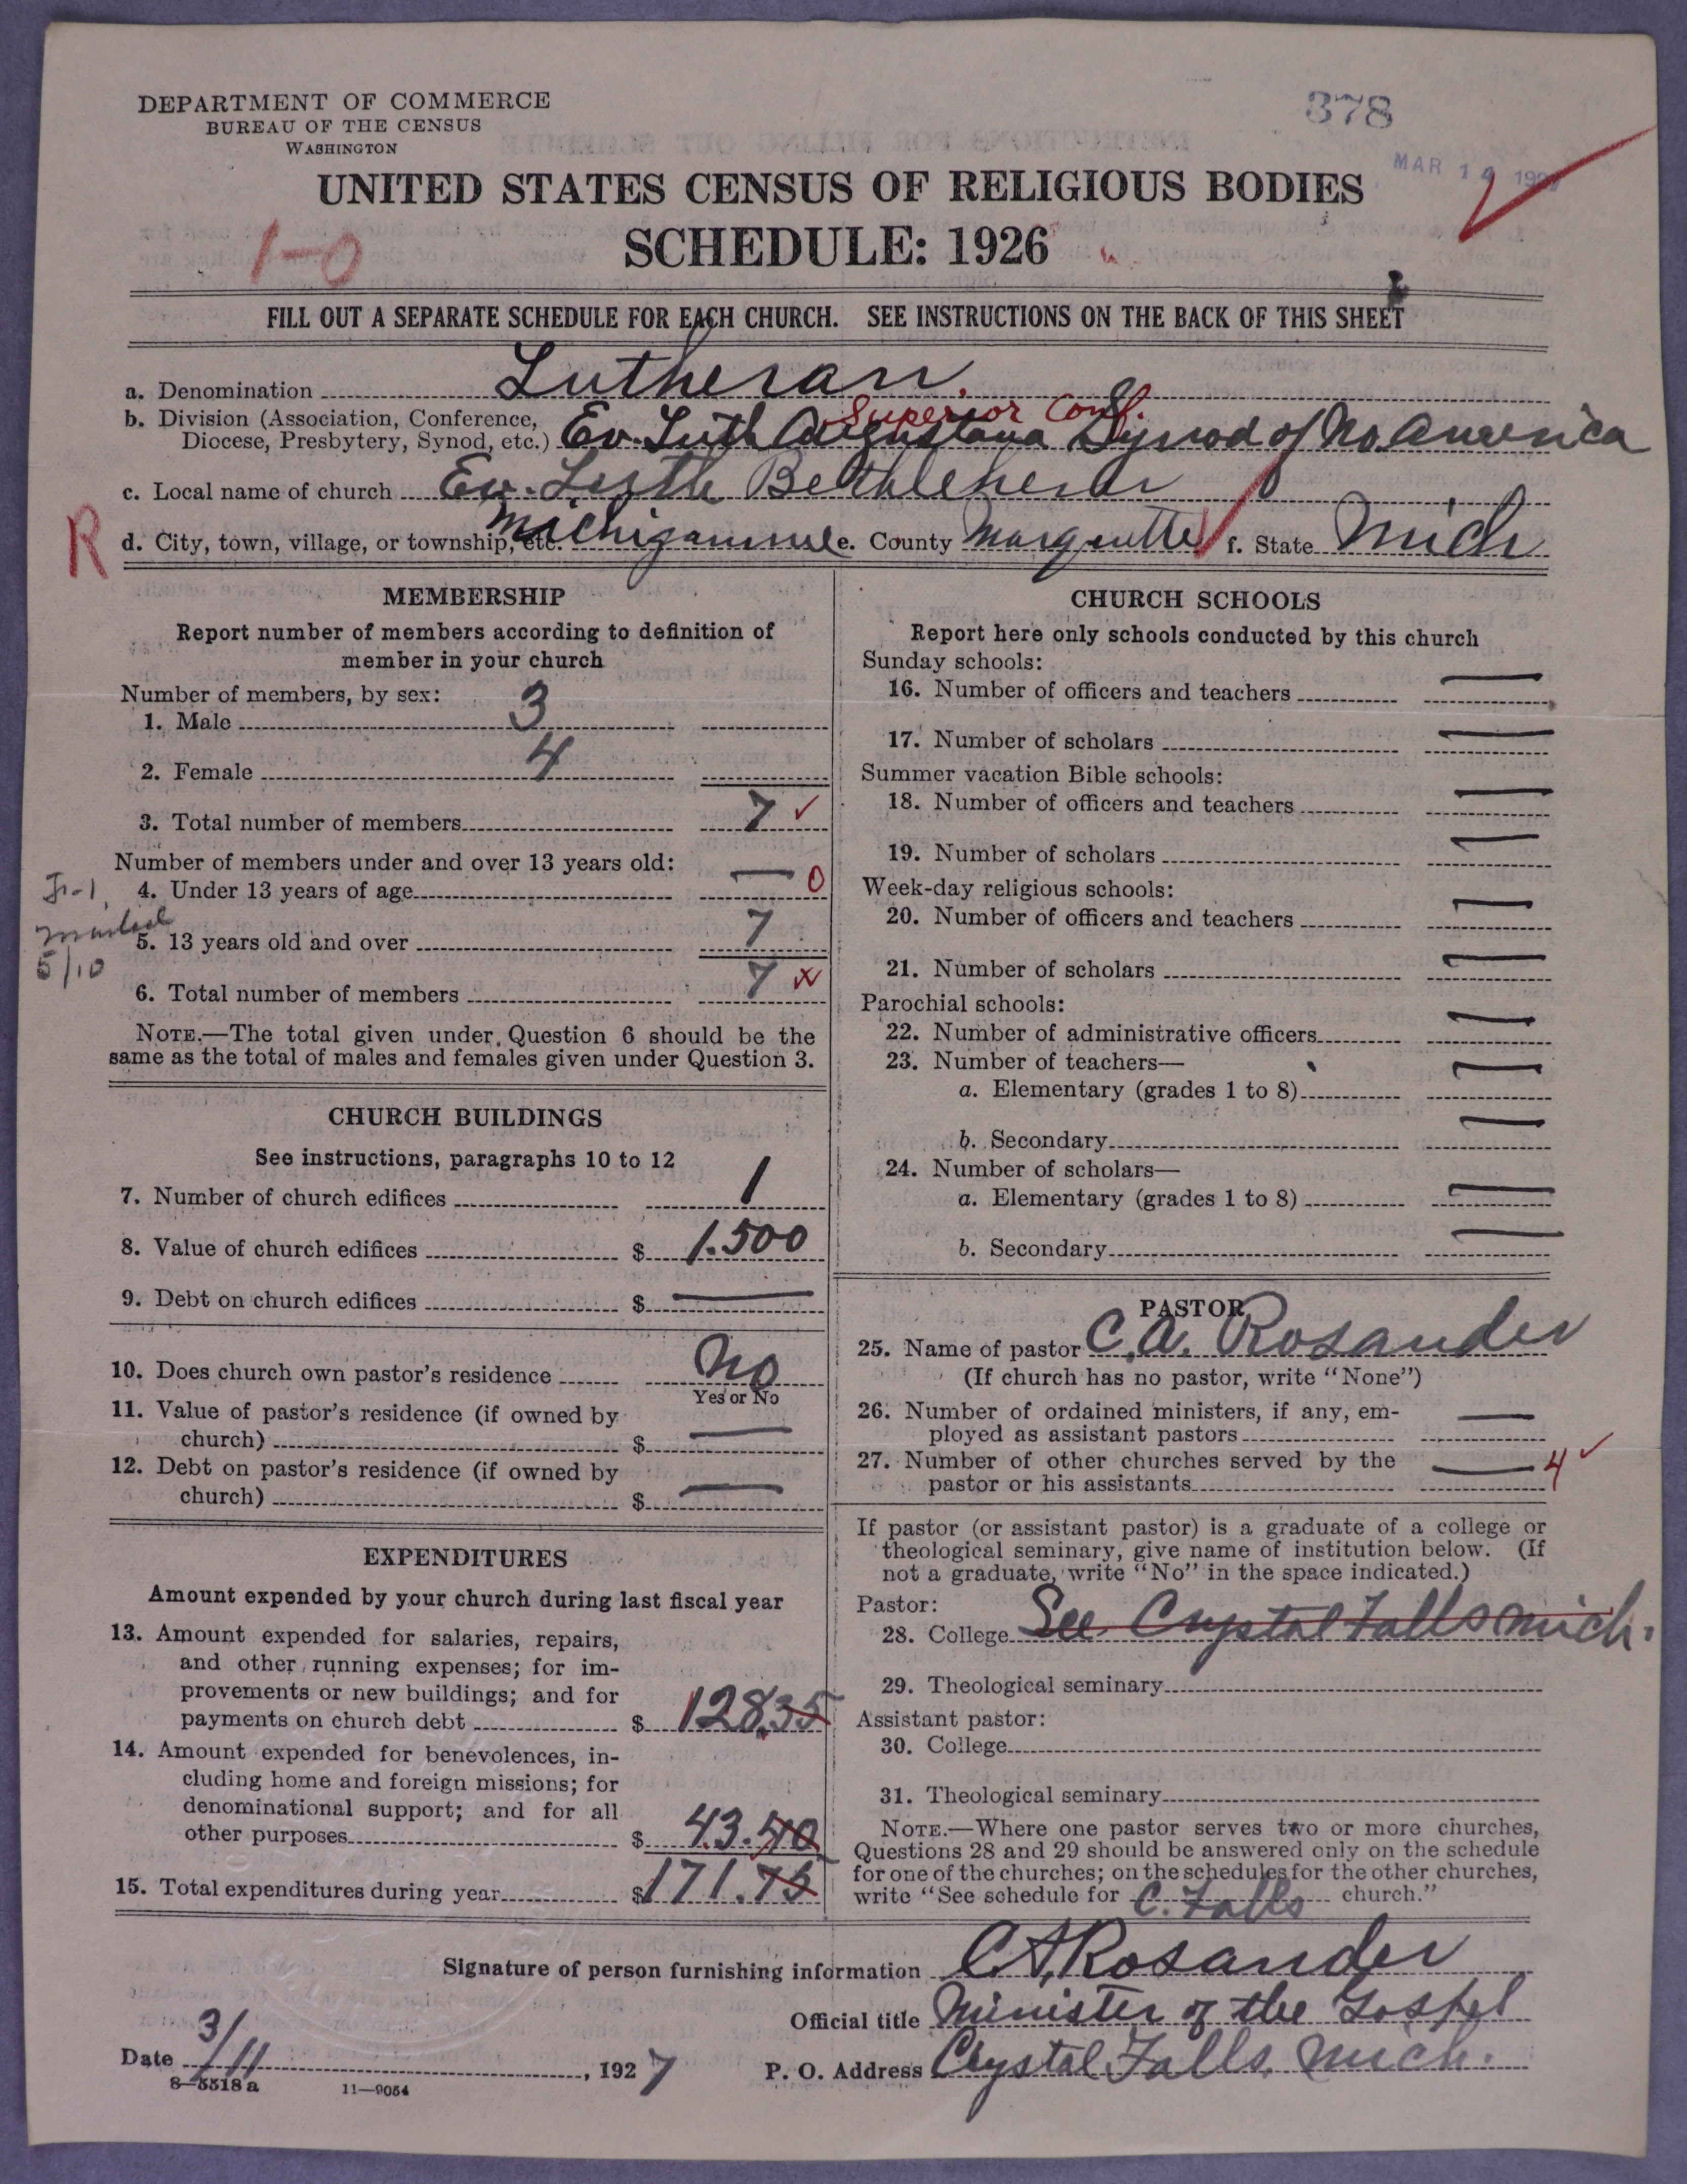 DEPARTMENT OF COMMERCE
BUREAU OF THE CENSUS
WASHINGTON
378
MAR 14 1927
UNITED STATES CENSUS OF RELIGIOUS BODIES
SCHEDULE: 1926
1-0
FILL OUT A SEPARATE SCHEDULE FOR EACH CHURCH. SEE INSTRUCTIONS ON THE BACK OF THIS SHEET
a. Denomination Lutheran.
Superior Conf.
b. Division (Association, Conference,
Diocese, Presbytery, Synod, etc.) Ev. Luth Augustana Synod of No. America
c. Local name of church Ev. Luth Bethlehem
R
d. City, town, village, or township, etc. Michigamme e. County Marquette f. State Mich
MEMBERSHIP
Report number of members according to definition of
member in your church
Number of members, by sex:
1. Male 3
2. Female 4
3. Total number of members 7 ✓
Number of members under and over 13 years old:
4. Under 13 years of age — 0
5. 13 years old and over 7
5/10
6. Total number of members 7
NOTE.—The total given under Question 6 should be the
same as the total of males and females given under Question 3.
CHURCH BUILDINGS
See instructions, paragraphs 10 to 12
7. Number of church edifices 1
8. Value of church edifices $ 1.500
9. Debt on church edifices $ —
10. Does church own pastor's residence No
Yes or No
11. Value of pastor's residence (if owned by
church) $ —
12. Debt on pastor's residence (if owned by
church) $ —
EXPENDITURES
Amount expended by your church during last fiscal year
13. Amount expended for salaries, repairs,
and other running expenses; for im-
provements or new buildings; and for
payments on church debt $ 128.35
14. Amount expended for benevolences, in-
cluding home and foreign missions; for
denominational support; and for all
other purposes $ 43.40
15. Total expenditures during year $ 171.75
CHURCH SCHOOLS
Report here only schools conducted by this church
Sunday schools:
16. Number of officers and teachers —
17. Number of scholars —
Summer vacation Bible schools:
18. Number of officers and teachers —
19. Number of scholars —
Week-day religious schools:
20. Number of officers and teachers —
21. Number of scholars —
Parochial schools:
22. Number of administrative officers —
23. Number of teachers—
a. Elementary (grades 1 to 8) —
b. Secondary —
24. Number of scholars—
a. Elementary (grades 1 to 8) —
b. Secondary —
PASTOR
25. Name of pastor C.A. Rosander
(If church has no pastor, write "None")
26. Number of ordained ministers, if any, em-
ployed as assistant pastors —
27. Number of other churches served by the
pastor or his assistants — 4 ✓
If pastor (or assistant pastor) is a graduate of a college or
theological seminary, give name of institution below. (If
not a graduate, write "No" in the space indicated.)
Pastor:
28. College See Crystal Falls Mich.
29. Theological seminary
Assistant pastor:
30. College
31. Theological seminary
NOTE.—Where one pastor serves two or more churches,
Questions 28 and 29 should be answered only on the schedule
for one of the churches; on the schedules for the other churches,
write "See schedule for C. Falls church."
Signature of person furnishing information C.A. Rosander
Official title Minister of the Gospel
Date 3/11, 1927 P. O. Address Crystal Falls, Mich.
8—5518 a 11—9054